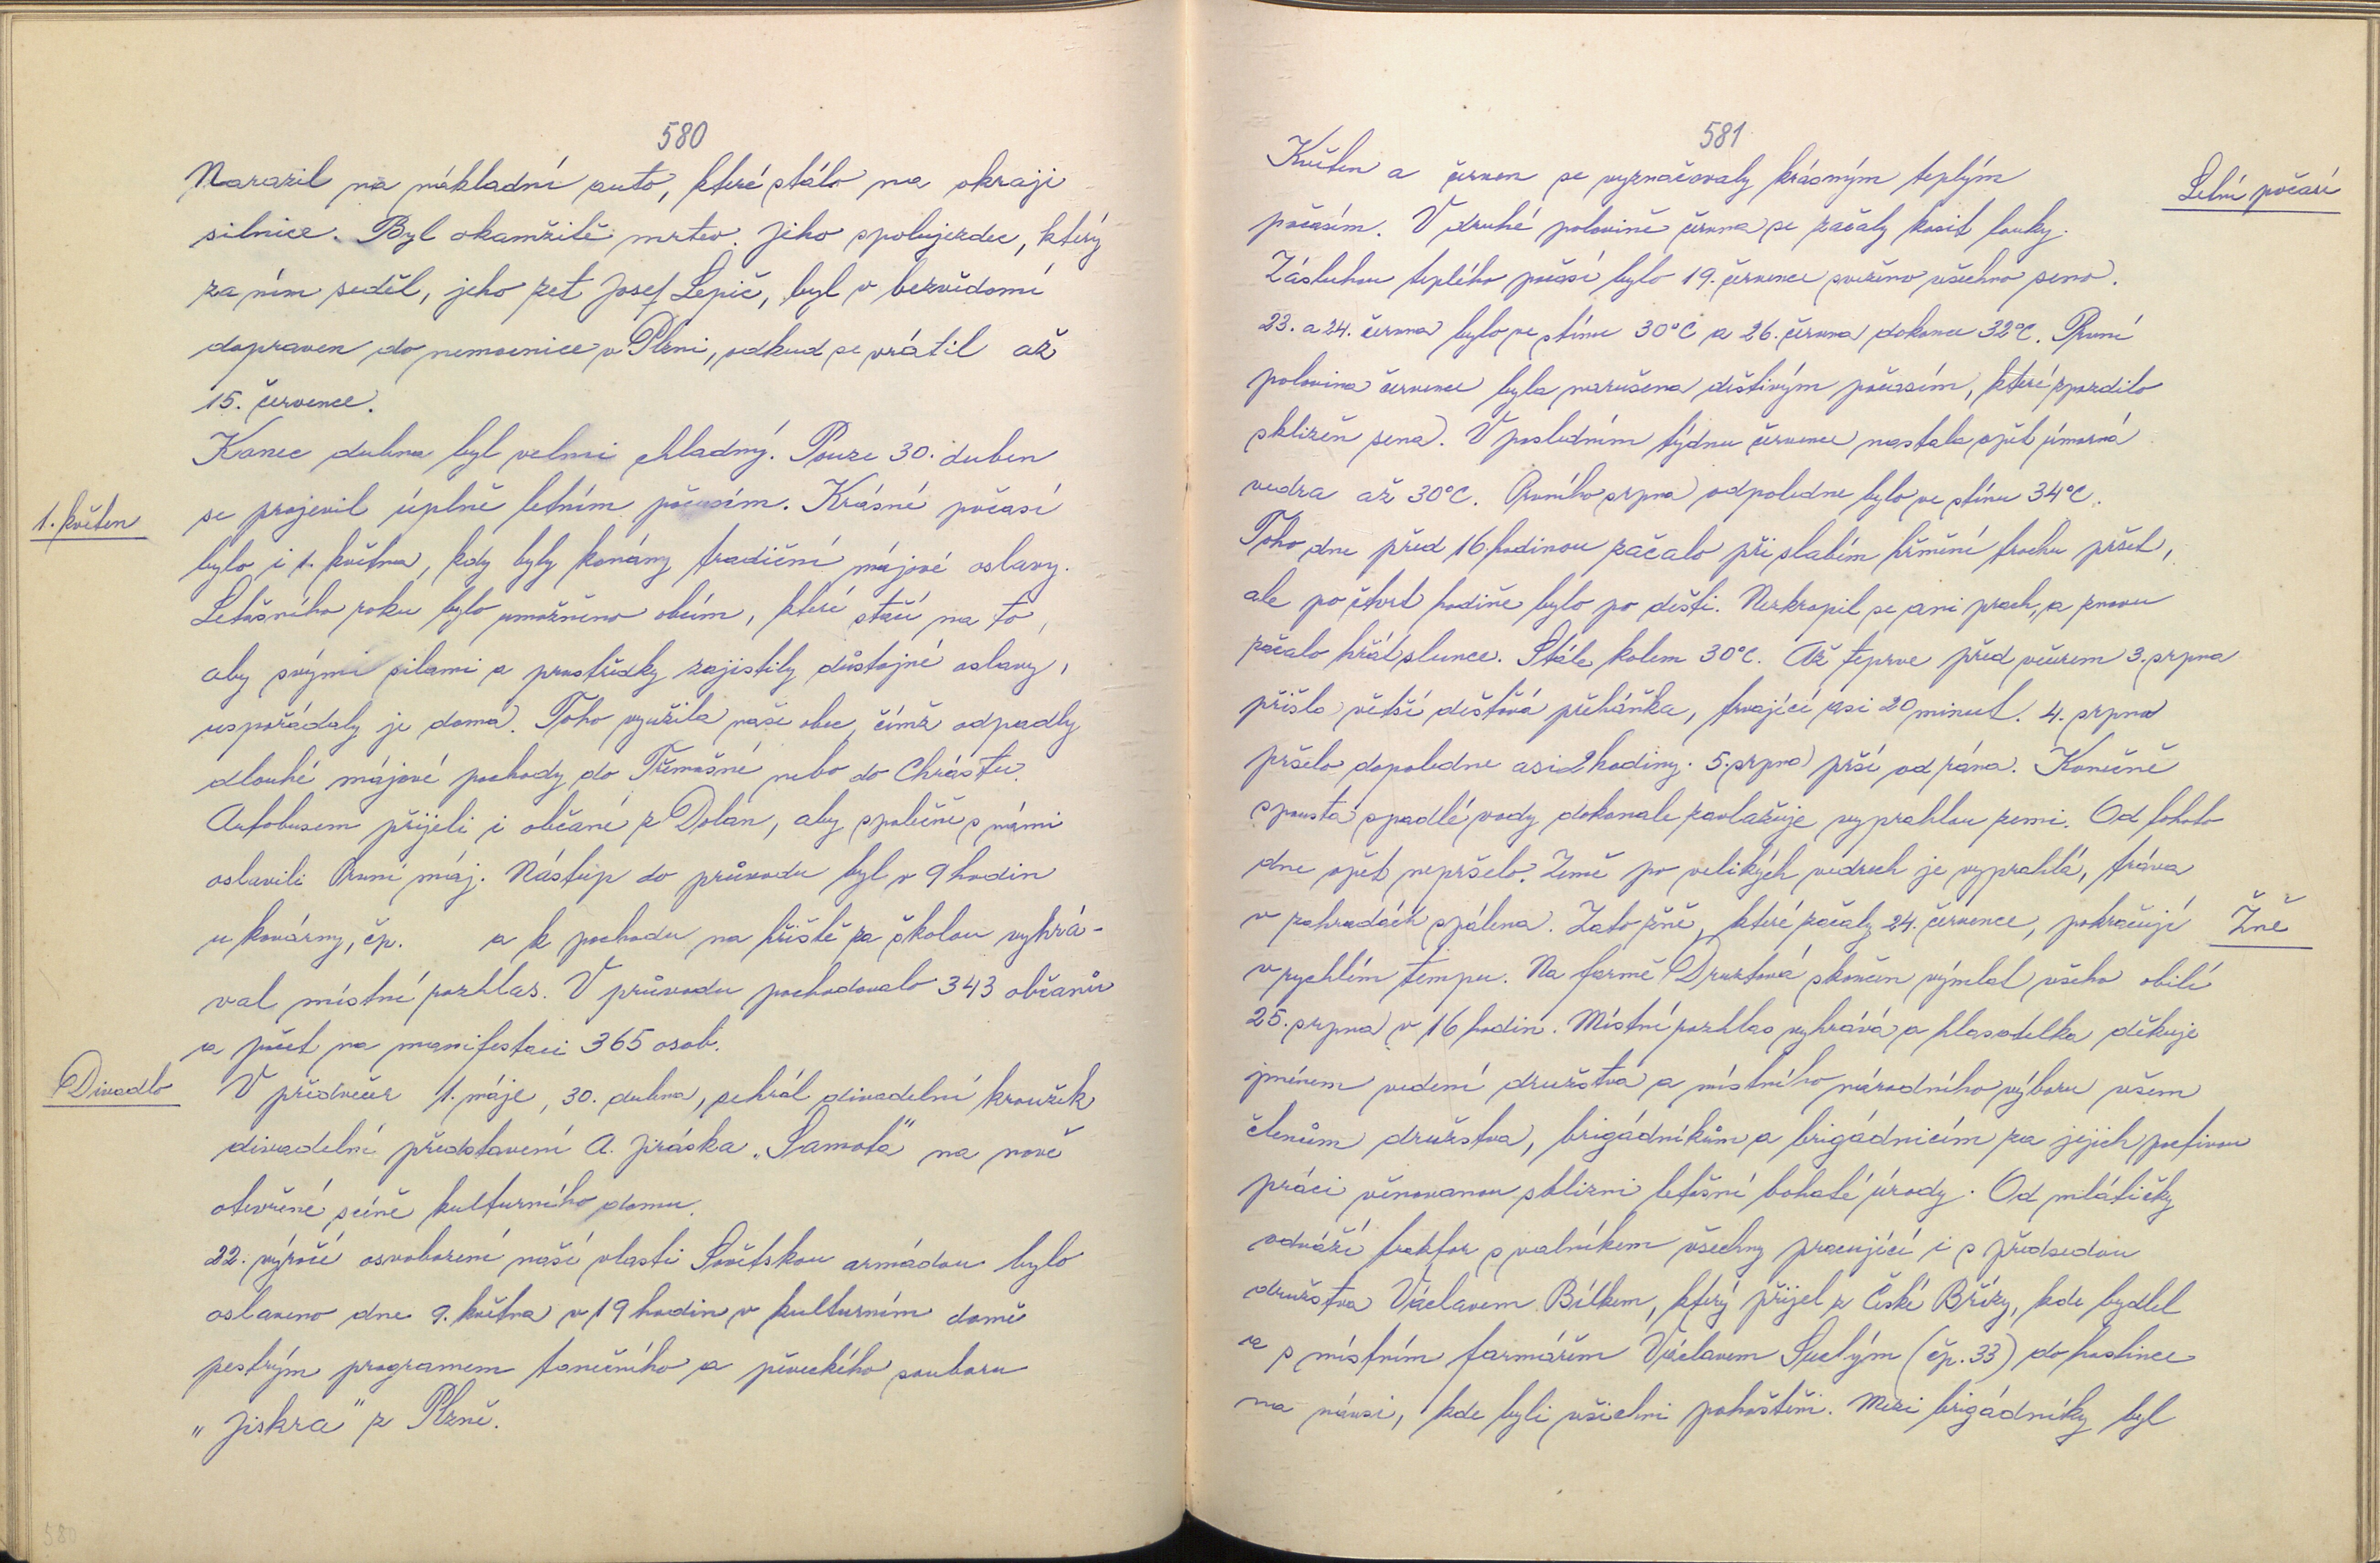 580
Narazil na nákladní auto, které stálo na okraji
silnice. Byl okamžitě mrtev. Jeho spolujezdec, který
za ním seděl, jeho zeť Josef Lepič, byl v bezvědomí
dopraven do nemocnice v Plzni, odkud se vrátil až
15. července.
Konec dubna byl velmi chladný. Pouze 30. duben
1. květen
se projevil úplně letním počasím. Krásné počasí
bylo i 1. května, kdy byly konány tradiční májové oslavy.
Letošního roku bylo umožněno obcím, které stačí na to,
aby svými silami a prostředky zajistily důstojné oslavy,
uspořádaly je doma. Toho využila naše obec, čímž odpadly
dlouhé májové pochody do Třemošné nebo do Chrástu.
Autobusem přijeli i občané z Dolan, aby společně s námi
oslavili První máj. Nástup do průvodu byl v 9 hodin
u kovárny, čp. a k pochodu na hřiště za školou vyhrá-
val místní rozhlas. V průvodu pochodovalo 343 občanův
a počet na manifestaci 365 osob.
Divadlo
V předvečer 1. máje, 30. dubna, sehrál divadelní kroužek
divadelní představení A. Jiráska „Samota" na nově
otevřené scéně kulturního domu.
22. výročí osvobození naší vlasti Sovětskou armádou bylo
oslaveno dne 9. května v 19 hodin v kulturním domě
pestrým programem tanečního a pěveckého souboru
„Jiskra" z Plzně.
581
Květen a červen se vyznačovaly krásným teplým
Letní počasí
počasím. V druhé polovině června se začaly kosit louky.
Zásluhou teplého počasí bylo 19. července svezeno všechno seno.
23. a 24. června bylo ve stínu 30°C a 26. června dokonce 32°C. První
polovina července byla narušena deštivým počasím, které zpozdilo
sklizeň sena. V posledním týdnu července nastala opět úmorná
vedra až 30°C. Prvního srpna odpoledne bylo ve stínu 34°C.
Toho dne před 16 hodinou začalo při slabém hřmění trochu pršet,
ale po čtvrt hodině bylo po dešti. Nezkropil se ani prach, a znovu
začalo hřát slunce. Stále kolem 30°C. Až teprve před večerem 3. srpna
přišla větší dešťová přeháňka, trvající asi 20 minut. 4. srpna
pršelo dopoledne asi 2 hodiny. 5. srpna prší od rána. Konečně
spousta spadlé vody dokonale zavlažuje vyprahlou zemi. Od tohoto
dne opět nepršelo. Země po velikých vedrech je vyprahlá, tráva
v zahradách spálena. Zato žně, které začaly 24. července, pokračují
Žně
v rychlém tempu. Na farmě Druztová skončen výmlat všeho obilí
25. srpna v 16 hodin. Místní rozhlas vyhrává a hlasatelka děkuje
jménem vedení družstva a místního národního výboru všem
členům družstva, brigádníkům a brigádnicím za jejich poctivou
práci věnovanou sklizni letošní bohaté úrody. Od mlátičky
odváží traktor s valníkem všechny pracující i s předsedou
družstva Václavem Bílkem, který přijel z České Břízy, kde bydlel
a s místním farmářem Václavem Suchým (čp. 33) do hostince
na návsi, kde byli všichni pohoštěni. Mezi brigádníky byl
580